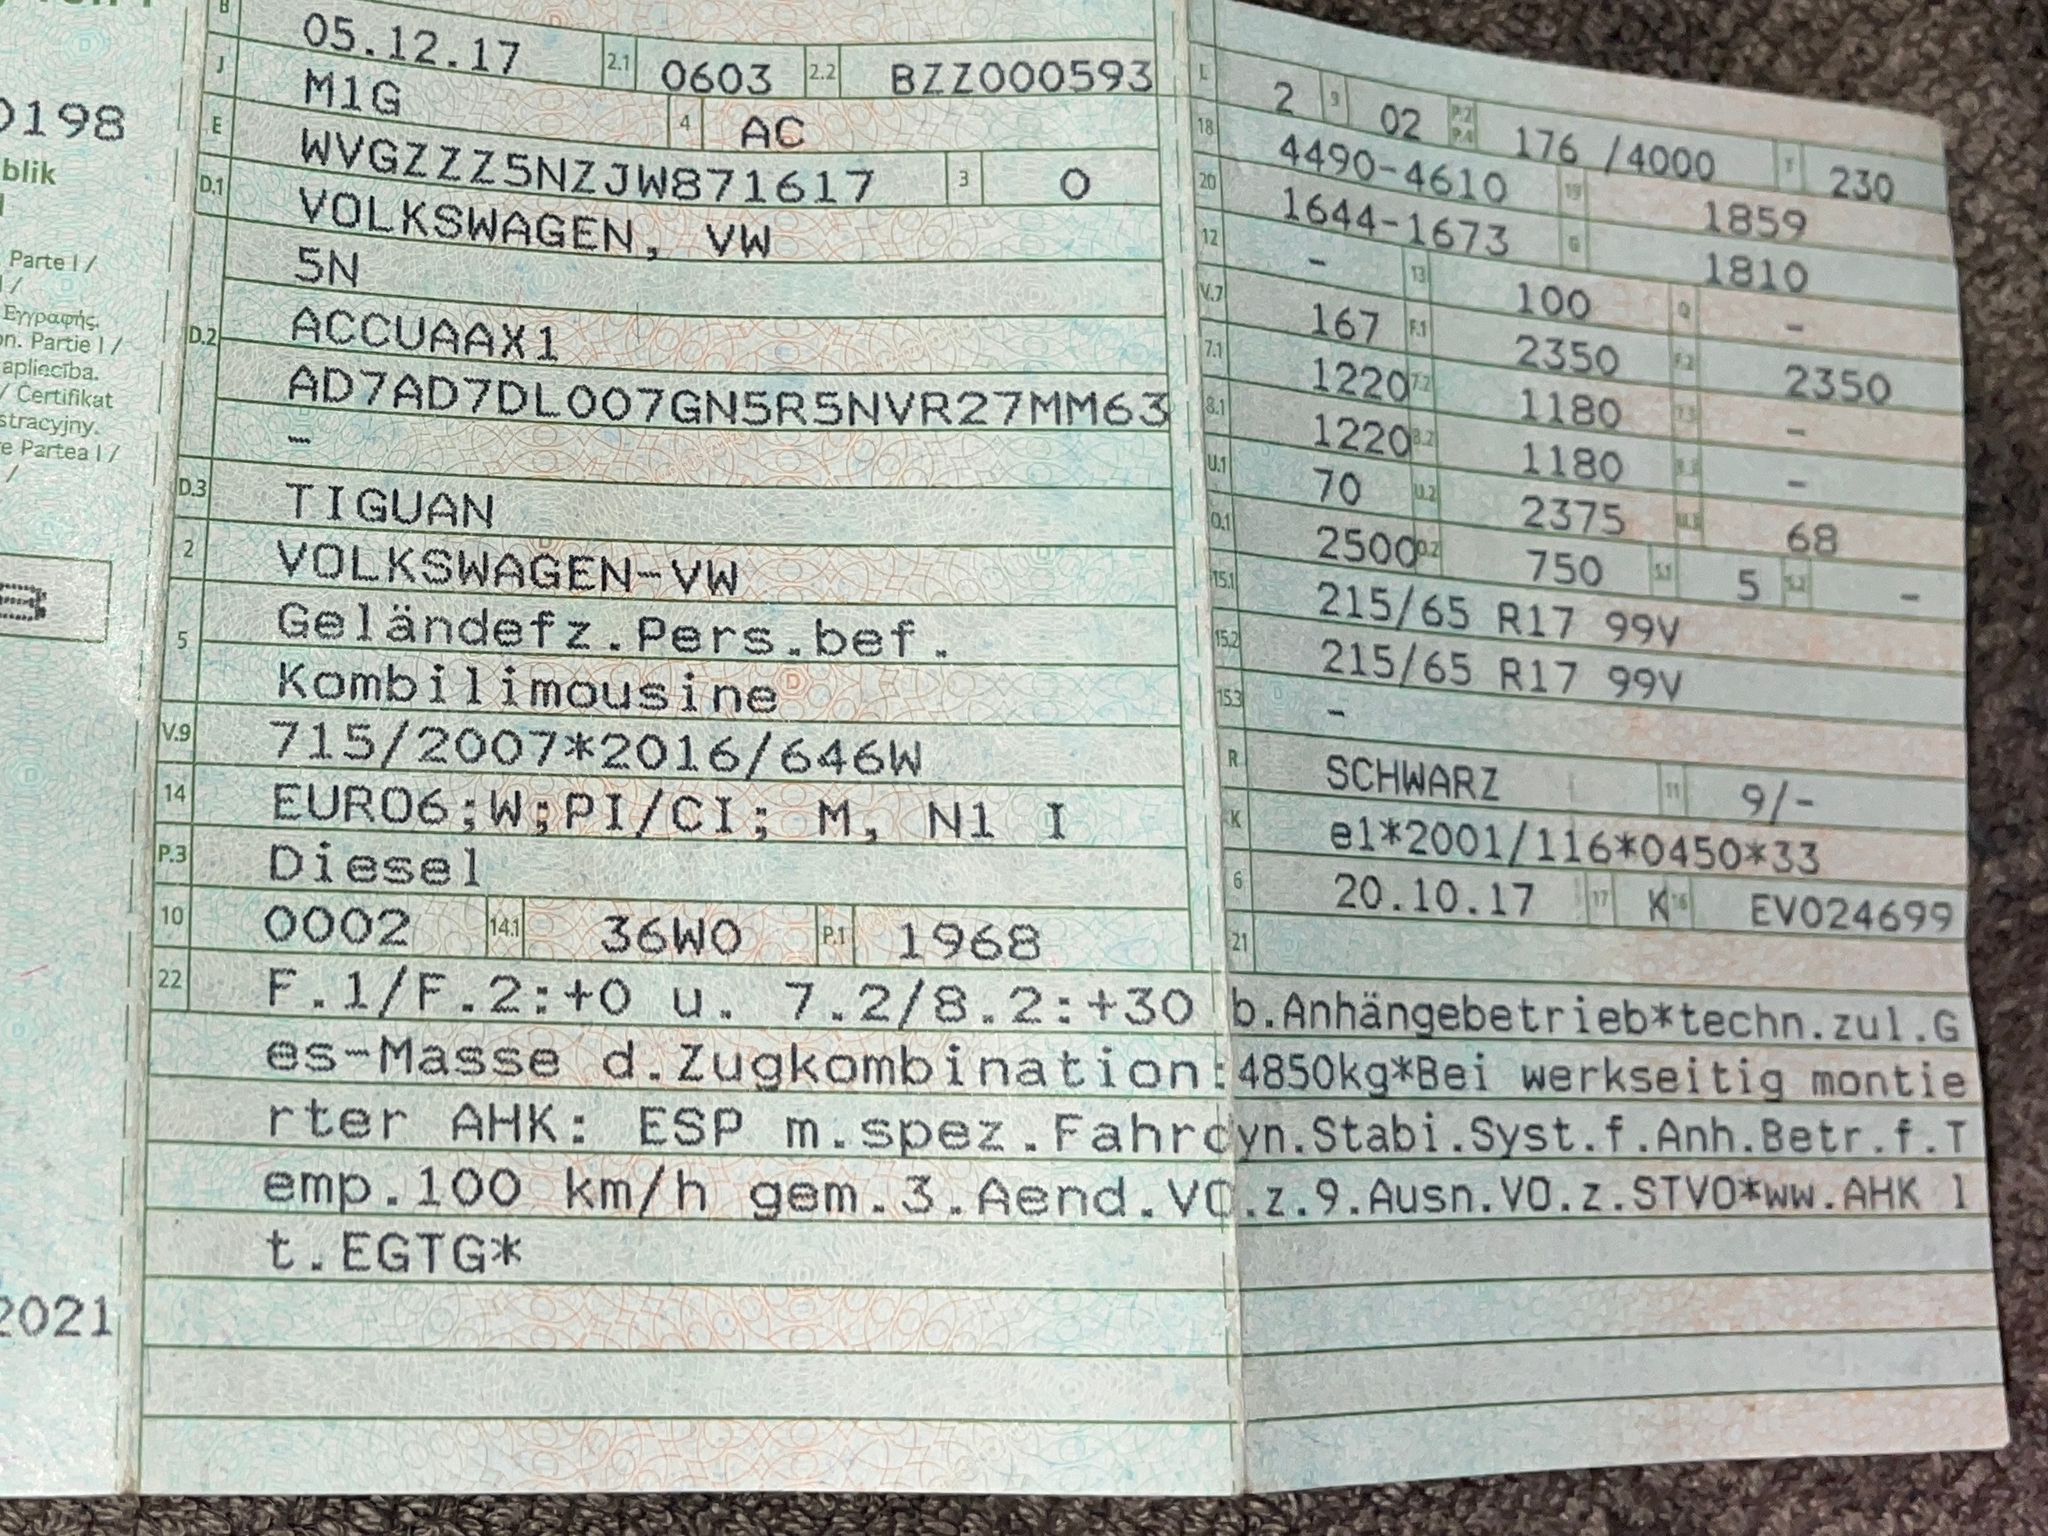 0198
blik
Parte I /
Εγγραφής.
on. Partie I /
apliecība.
/ Certifikat
stracyjny.
e Partea I /
/
B
2021
B 05.12.17 2.1 0603 2.2 BZZ000593
J M1G 4 AC
E WVGZZZ5NZJW871617 3 0
D.1 VOLKSWAGEN, VW
5N
D.2 ACCUAAX1
AD7AD7DL007GN5R5NVR27MM63
–
D.3 TIGUAN
2 VOLKSWAGEN-VW
5 Geländefz.Pers.bef.
Kombilimousine
V.9 715/2007*2016/646W
14 EURO6;W;PI/CI; M, N1 I
P.3 Diesel
10 0002 14.1 36W0 P.1 1968
L 2 9 02 P.2 P.4 176 /4000 T 230
18 4490-4610 19 1859
20 1644-1673 G 1810
12 – 13 100 Q –
V.7 167 F.1 2350 F.2 2350
7.1 1220 7.2 1180 7.3 –
8.1 1220 8.2 1180 8.3 –
U.1 70 U.2 2375 U.3 68
O.1 2500 O.2 750 S.1 5 S.2 –
15.1 215/65 R17 99V
15.2 215/65 R17 99V
15.3 –
R SCHWARZ 11 9/-
K e1*2001/116*0450*33
6 20.10.17 17 K 16 EV024699
21
22 F.1/F.2:+0 u. 7.2/8.2:+30 b.Anhängebetrieb*techn.zul.G
es-Masse d.Zugkombination:4850kg*Bei werkseitig montie
rter AHK: ESP m.spez.Fahrdyn.Stabi.Syst.f.Anh.Betr.f.T
emp.100 km/h gem.3.Aend.VO.z.9.Ausn.VO.z.STVO*ww.AHK l
t.EGTG*